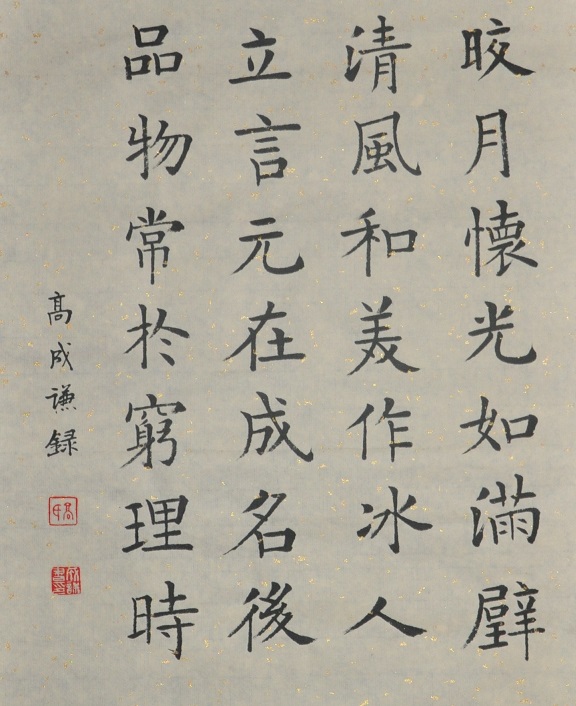 皎月懷光如滿璧
清風和美作冰人
立言元在成名後
品物常於窮理時
高成謙録